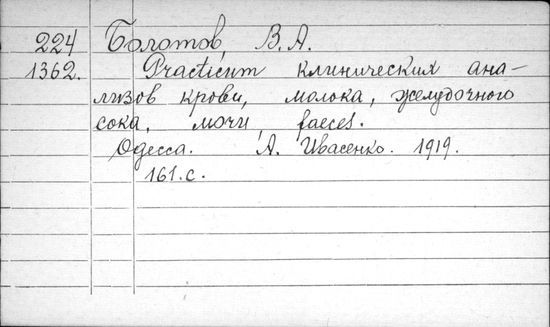 224 Болотов, В. А.
1362. Practicum клинических ана-
лизов крови, молока, желудочного
сока, мочи, faeces.
Одесса. А. Ивасенко. 1919.
161 с.